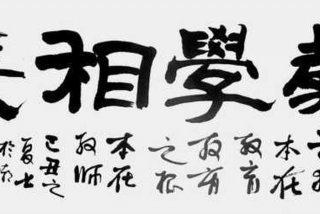 教學相長
本在
教育
教育
之根
本在
教師
己丑之
夏
於